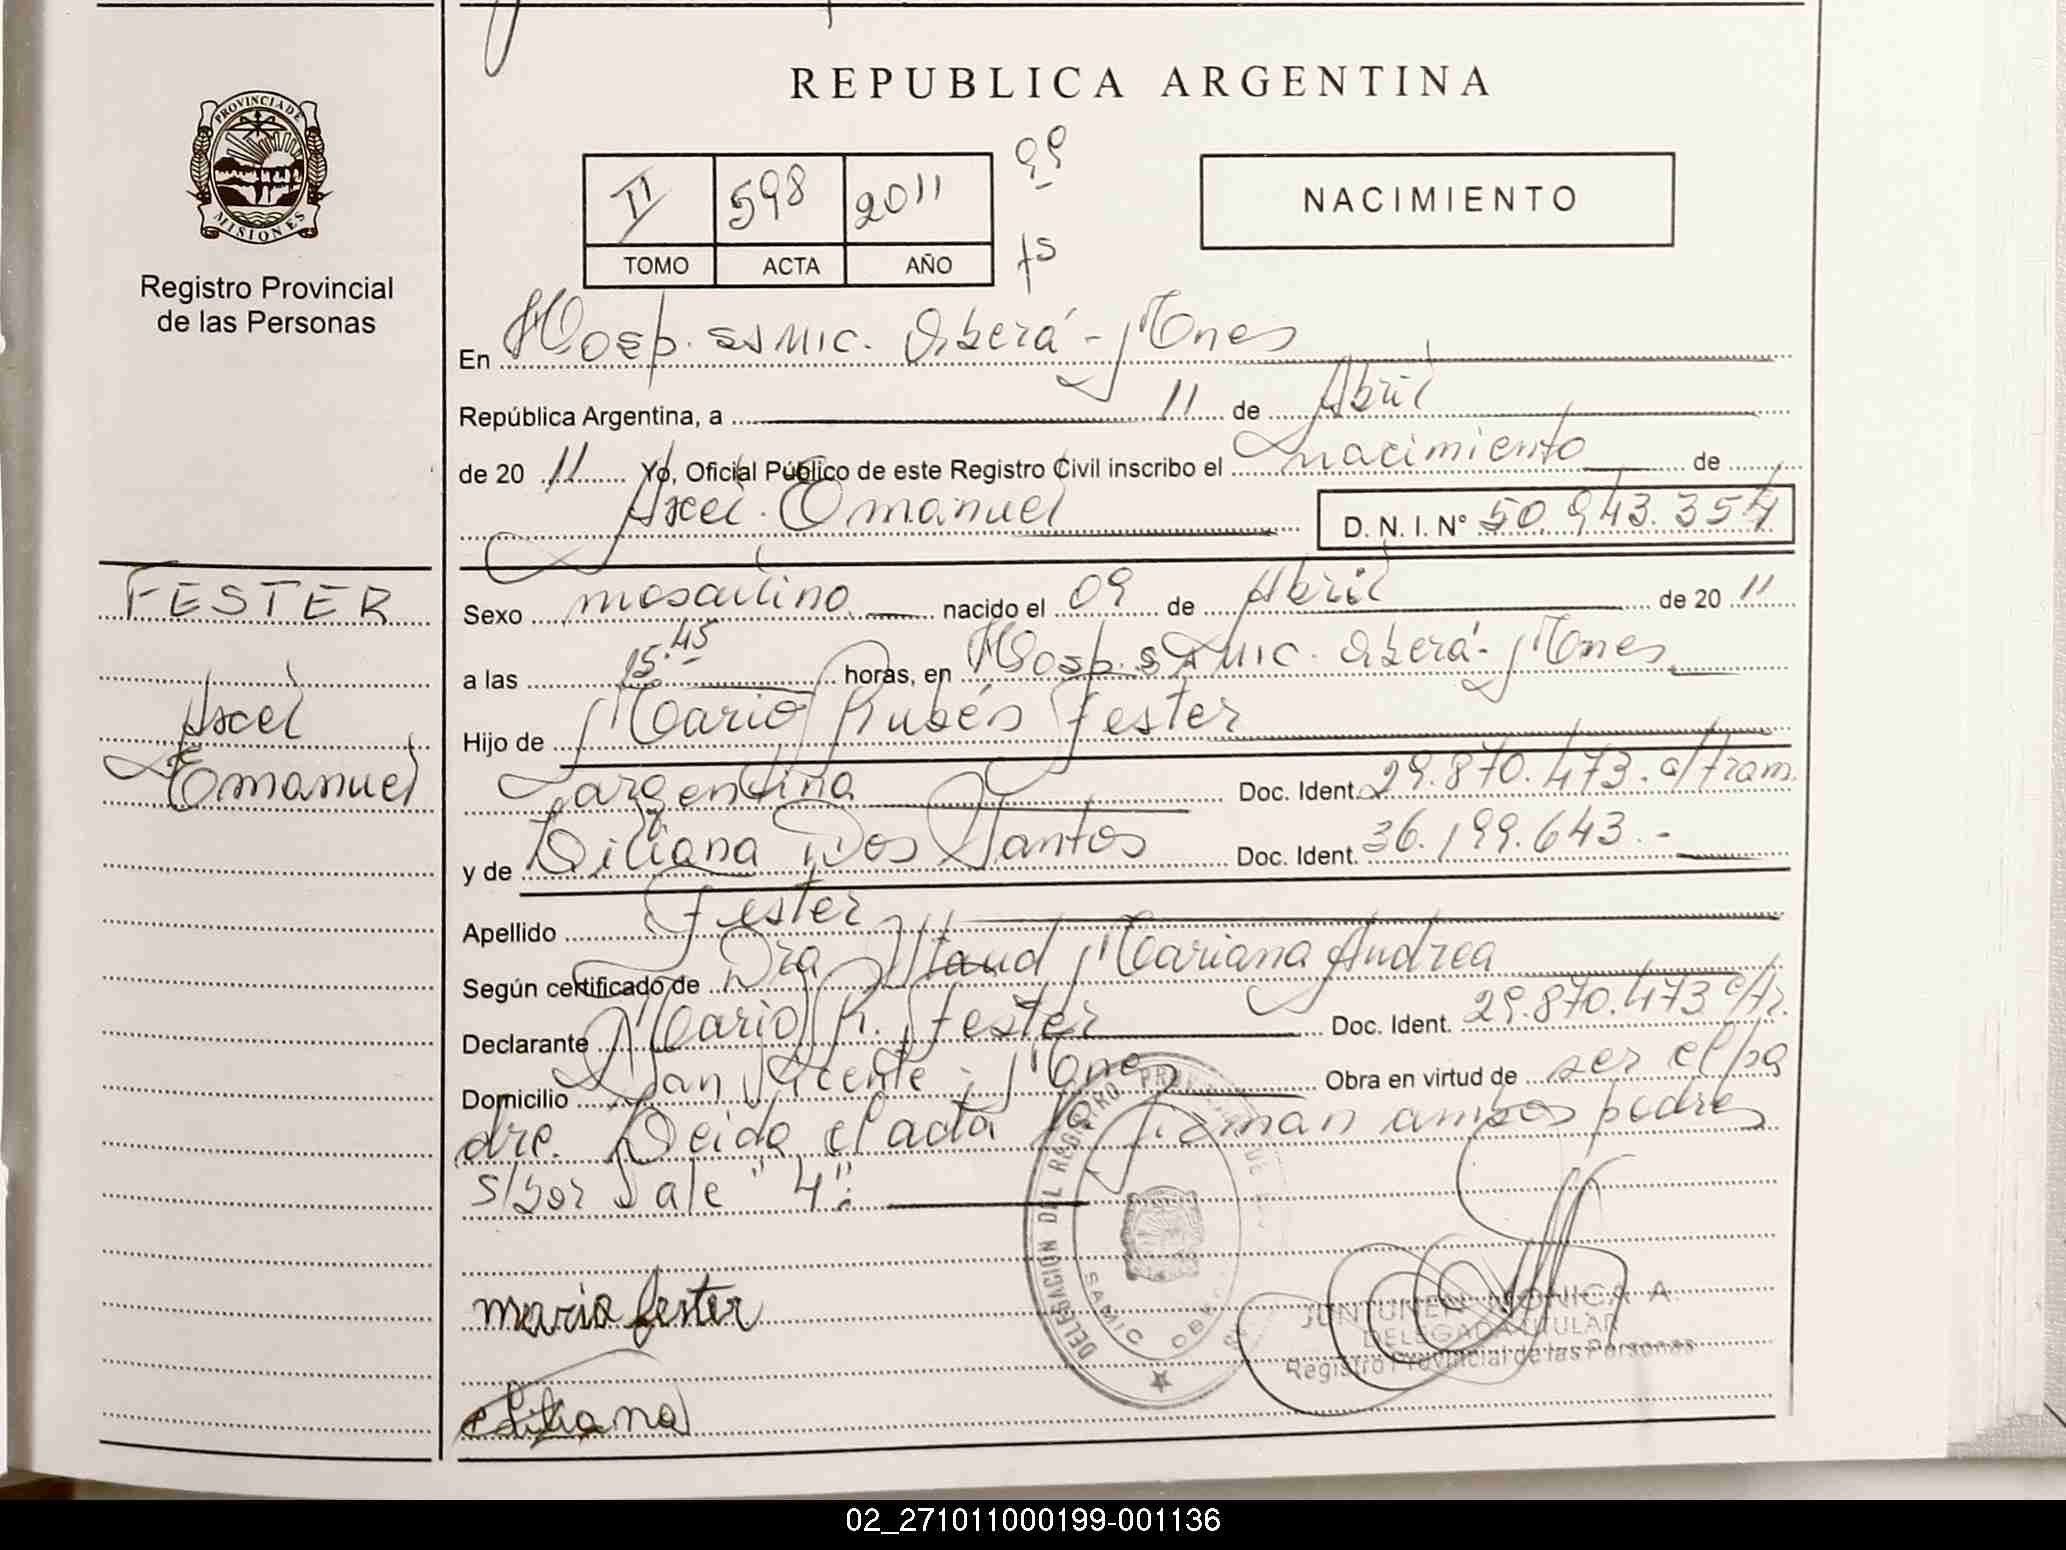 REPUBLICA ARGENTINA
PROVINCIA DE
MISIONES
Registro Provincial
de las Personas
II 598 2011
TOMO ACTA AÑO
NACIMIENTO
En Hosp. SAMIC. Oberá - Mnes
República Argentina, a 11 de Abril
de 20 11 Yo, Oficial Público de este Registro Civil inscribo el nacimiento de
Axel Emanuel D. N. I. N° 50.943.354
FESTER
Axel
Emanuel
Sexo masculino nacido el 09 de Abril de 20 11
a las 15.45 horas, en Hosp. SAMIC. Oberá - Mnes
Hijo de Mario Rubén Fester
argentina Doc. Ident. 29.870.473. c/tram.
y de Liliana Dos Santos Doc. Ident. 36.199.643.-
Apellido Fester
Según certificado de Dra. Staud Mariana Andrea
Declarante Mario R. Fester Doc. Ident. 29.870.473 c/tr.
Domicilio San Vicente - Mnes Obra en virtud de ser el pa
dre. Leida el acta la firman ambos padres
s/bor Vale "4".
DELEGACIÓN DEL REGISTRO
SAMIC
mario fester
Liliana
JUNTUNEN MONICA A.
DELEGADA TITULAR
Registro Provincial de las Personas
02_271011000199-001136